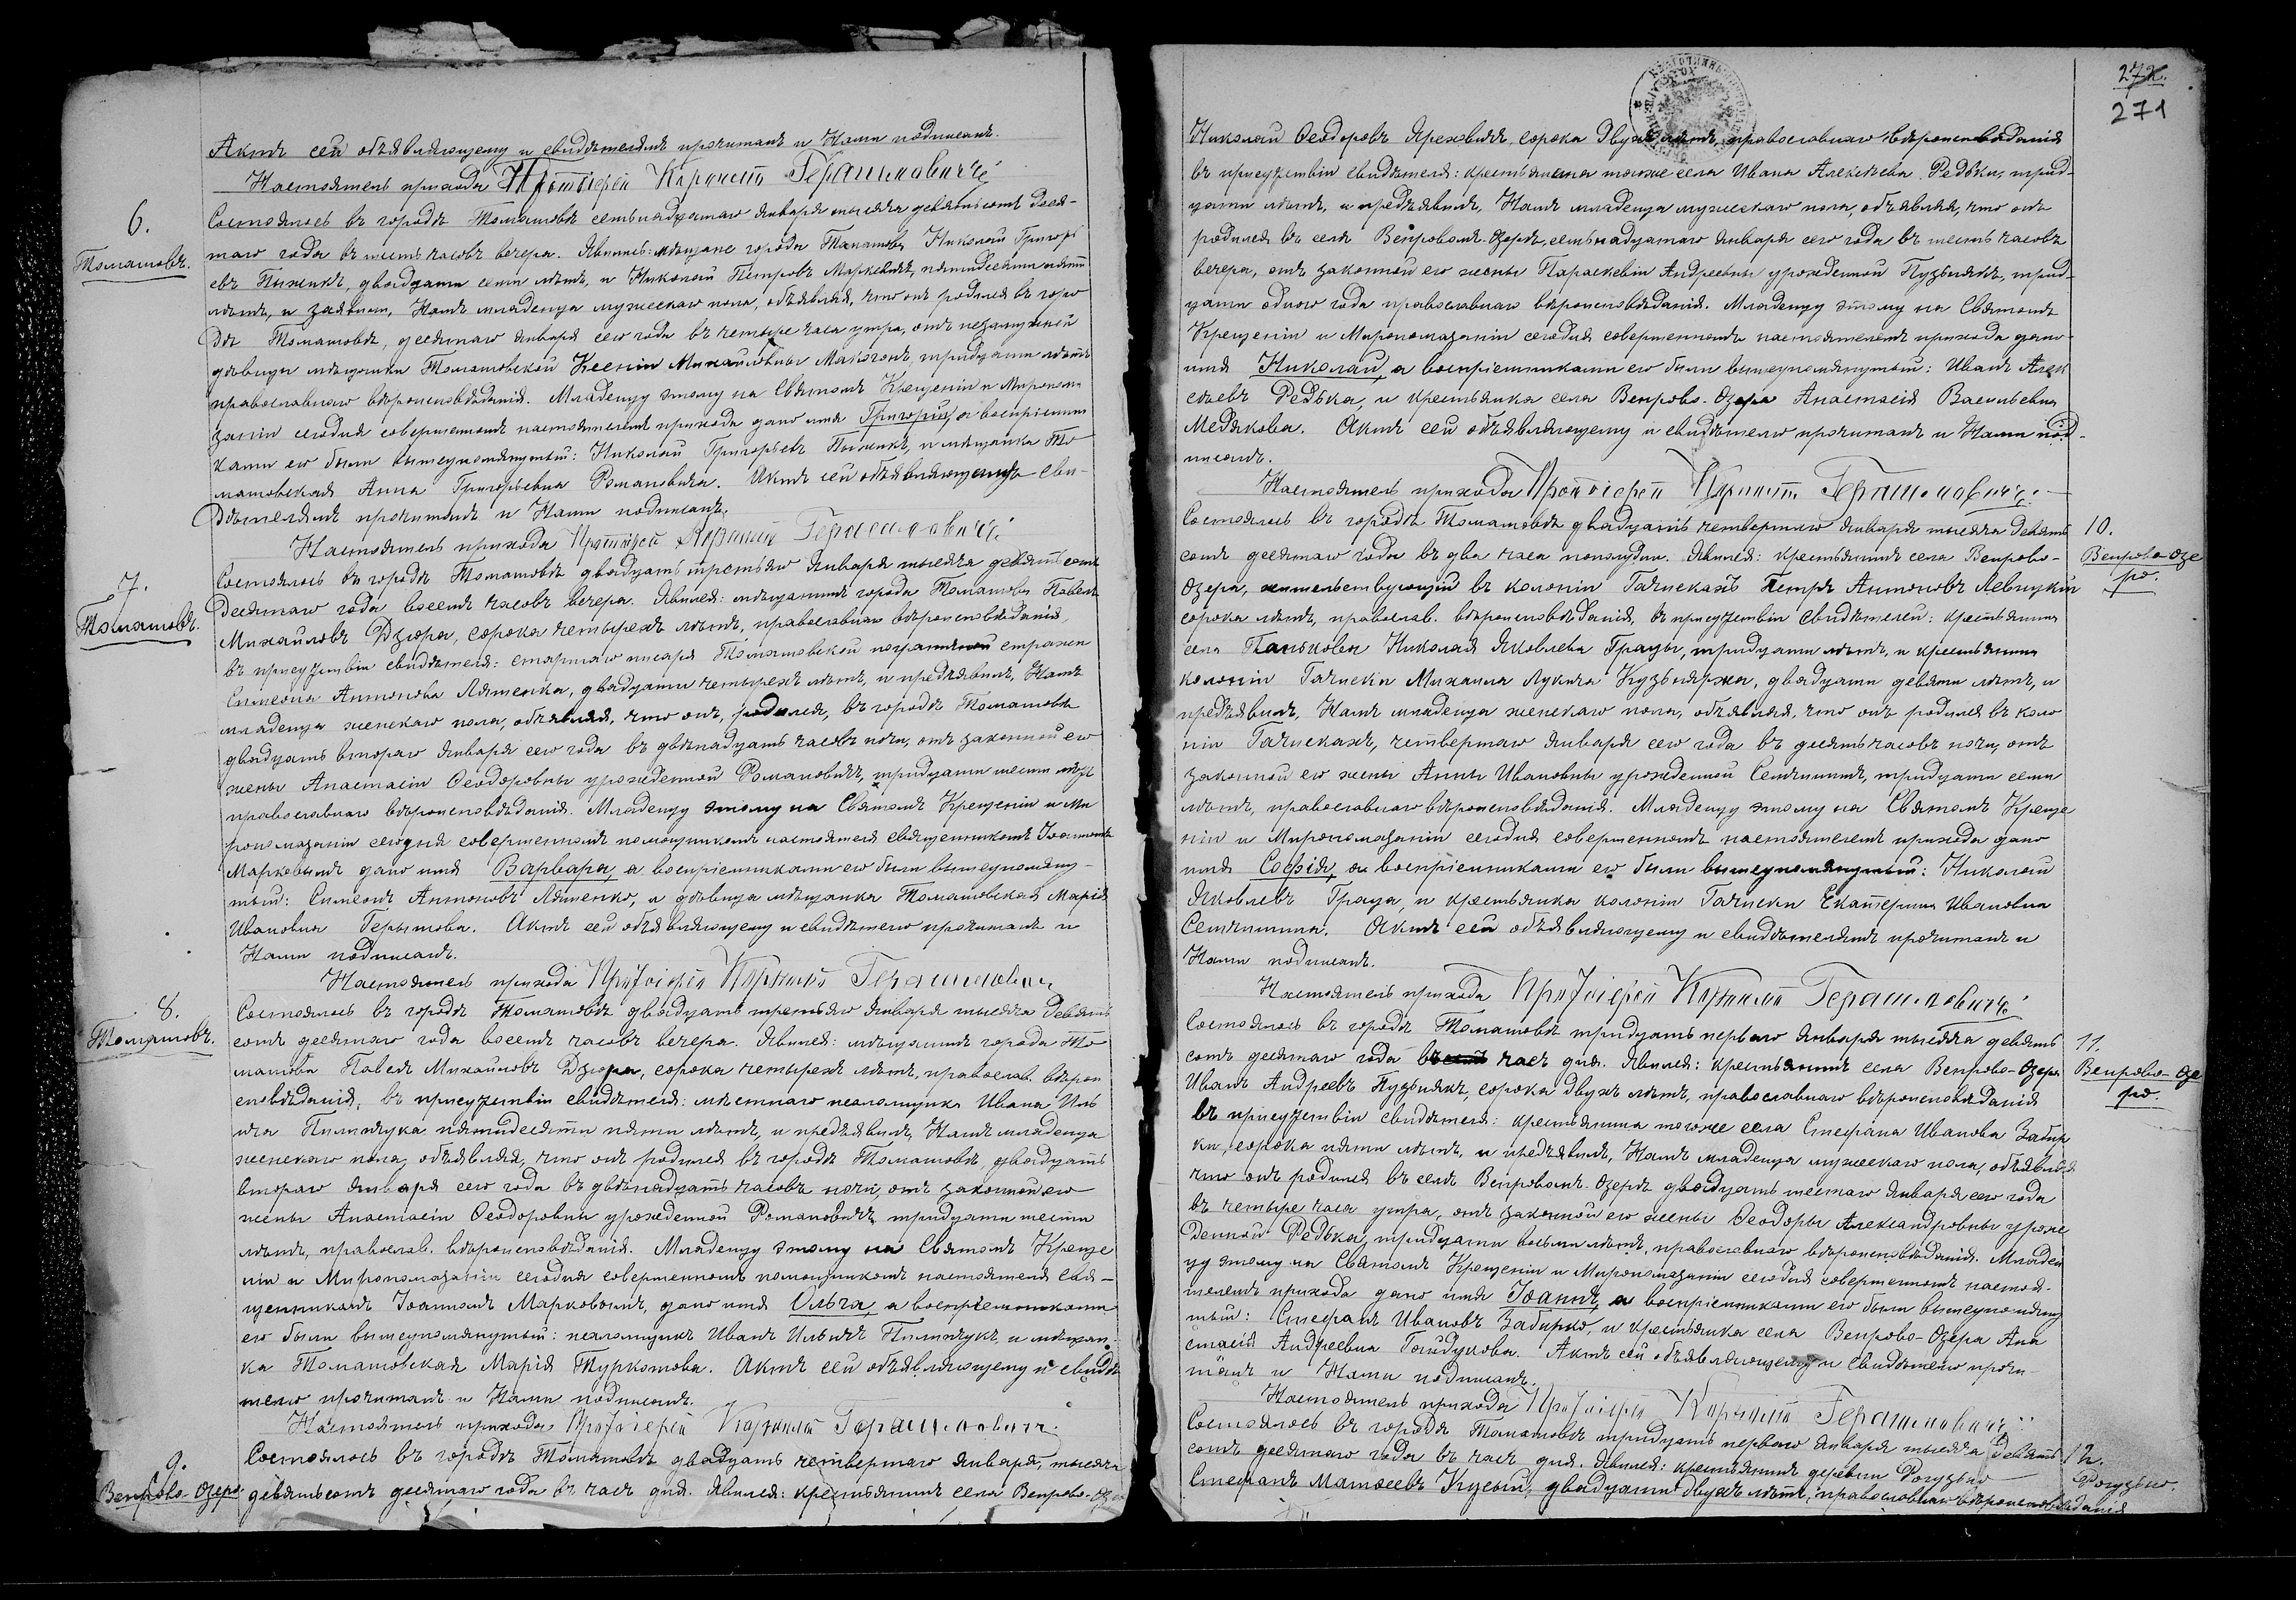 Актъ сей объявляющему и свидѣтелямъ прочитанъ и Нами подписанъ.
Настоятель прихода Протоіерей Корнилій Герасимовичъ
6.
Томашовъ.
Состоялось въ городѣ Томашовѣ семьнадцатаго Января тысяча девятьсотъ деся-
таго года въ шесть часовъ вечера. Явились: мѣщане города Томашова Николай Григорь
евъ Пыжикъ, двадцати семи лѣтъ, и Николай Петровъ Маркевичъ, пятидесяти пяти
лѣтъ, и заявили, Намъ младенца мужескаго пола, объявляя, что онъ родился въ горо
дѣ Томашовѣ, десятаго Января сего года въ четыре часа утра, отъ незамужней
дѣвицы мѣщанки Томашовской Ксеніи Михайловны Макогонъ, тридцати лѣтъ
православнаго вѣроисповѣданія. Младенцу этому на Святомъ Крещеніи и Миропома
заніи сегодня совершенномъ настоятелемъ прихода дано имя Григорій, а воспріемни
ками его были вышеупомянутый: Николай Григорьевъ Пыжикъ, и мѣщанка То
машовская Анна Григорьевна Романовичъ. Актъ сей объявляющему и сви-
дѣтелямъ прочитанъ и Нами подписанъ.
Настоятель прихода Протоіерей Корнилій Герасимовичъ
7.
Томашовъ.
Состоялось въ городѣ Томашовѣ двадцать третьяго Января тысяча девятьсотъ
десятаго года восемь часовъ вечера. Явился: мѣщанинъ города Томашова Павелъ
Михайловъ Дзюра, сорока четырехъ лѣтъ, православнаго вѣроисповѣданія,
въ присутствіи свидѣтеля: старшаго писаря Томашовской пограничной стражи
Симеона Антонова Ляшенка, двадцати четырехъ лѣтъ, и предъявилъ, Намъ
младенца женскаго пола, объявляя, что онъ, родился, въ городѣ Томашовѣ
двадцать втораго Января сего года въ двѣнадцать часовъ ночи, отъ законной его
жены Анастасіи Ѳеодоровны урожденной Романовичъ, тридцати шести лѣтъ
православнаго вѣроисповѣданія. Младенцу этому на Святомъ Крещеніи и Ми
ропомазаніи сегодня совершенномъ помощникомъ настоятеля священникомъ Іоанномъ
Марковымъ дано имя Варвара, а воспріемниками его были вышеупомяну-
тый: Симеонъ Антоновъ Ляшенко, и дѣвица мѣщанка Томашовская Марія
Ивановна Герытова. Актъ сей объявляющему и свидѣтелю прочитанъ и
Нами подписанъ.
Настоятель прихода Протоіерей Корнилій Герасимовичъ
8.
Томашовъ.
Состоялось въ городѣ Томашовѣ двадцать третьяго Января тысяча девять
сотъ десятаго года восемь часовъ вечера. Явился: мѣщанинъ города То
машова Павелъ Михайловъ Дзюра, сорока четырехъ лѣтъ, православ. вѣрои
сповѣданія, въ присутствіи свидѣтеля: мѣстнаго псаломщика Ивана Иль
ича Пилипчука пятидесяти пяти лѣтъ, и предъявилъ, Намъ младенца
женскаго пола, объявляя, что онъ родился въ городѣ Томашовѣ, двадцать
втораго Января сего года въ двѣнадцать часовъ ночи, отъ законной его
жены Анастасіи Ѳеодоровны урожденной Романовичъ, тридцати шести
лѣтъ, православ. вѣроисповѣданія. Младенцу этому на Святомъ Креще
ніи и Миропомазаніи сегодня совершенномъ помощникомъ настоятеля свя-
щенникомъ Іоанномъ Марковымъ, дано имя Ольга, а воспріемниками
его были вышеупомянутый: псаломщикъ Иванъ Ильичъ Пилипчукъ, и мѣщан-
ка Томашовская Марія Туркотова. Актъ сей объявляющему и свидѣ
телю прочитанъ и Нами подписанъ.
Настоятель прихода Протоіерей Корнилій Герасимовичъ
9.
Венрово-Озеро
Состоялось въ городѣ Томашовѣ двадцать четвертаго Января, тысяча
девятьсотъ десятаго года въ часъ дня. Явился: крестьянинъ села Венрово-Озера
272.
271
Николай Ѳеодоровъ Яреховичъ, сорока двухъ лѣтъ, православнаго вѣроисповѣданія
въ присутствіи свидѣтеля: крестьянина тогоже села Ивана Алексѣева Редька, трид-
цати лѣтъ, и предъявилъ, Намъ младенца мужескаго пола, объявляя, что онъ
родился въ селѣ Венровомъ-Озерѣ, семьнадцатаго Января сего года въ шесть часовъ
вечера, отъ законной его жены Параскевіи Андреевны урожденной Пузьнякъ, трид-
цати одного года православнаго вѣроисповѣданія. Младенцу этому на Святомъ
Крещеніи и Миропомазаніи сегодня совершенномъ настоятелемъ прихода дано
имя Николай, а воспріемниками его были вышеупомянутый: Иванъ Алек
сѣевъ Редька, и крестьянка села Венрово-Озера Анастасія Васильевна
Медякова. Актъ сей объявляющему и свидѣтелю прочитанъ и Нами под-
писанъ.
Настоятель прихода Протоіерей Корнилій Герасимовичъ
10.
Венрово-Озе
ро.
Состоялось въ городѣ Томашовѣ двадцать четвертаго Января тысяча девять
сотъ десятаго года въ два часа пополудни. Явился: крестьянинъ села Венрово-
Озера, жительствующій въ колоніи Гачискахъ Петръ Антоновъ Левицкій
сорока лѣтъ, православ. вѣроисповѣданія, въ присутствіи свидѣтелей: крестьянина
села Паньковки Николая Яковлева Грацы, тридцати лѣтъ, и крестьянина
колоніи Гачиски Михаила Лукича Кузьняржа, двадцати девяти лѣтъ, и
предъявилъ, Намъ младенца женскаго пола, объявляя, что онъ родился въ коло
ніи Гачискахъ, четвертаго Января сего года въ десять часовъ ночи, отъ
законной его жены Анны Ивановны урожденной Семчишинъ, тридцати семи
лѣтъ, православнаго вѣроисповѣданія. Младенцу этому на Святомъ Креще
ніи и Миропомазаніи сегодня совершенномъ настоятелемъ прихода дано
имя Софія, а воспріемниками его были вышеупомянутый: Николай
Яковлевъ Граца, и крестьянка колоніи Гачиски Екатерина Ивановна
Семчишина. Актъ сей объявляющему и свидѣтелямъ прочитанъ и
Нами подписанъ.
Настоятель прихода Протоіерей Корнилій Герасимовичъ
11.
Венрово-Озе
ро.
Состоялось въ городѣ Томашовѣ тридцать перваго Января тысяча девять
сотъ десятаго года въ часъ дня. Явился: крестьянинъ села Венрово-Озера
Иванъ Андреевъ Пузьнякъ, сорока двухъ лѣтъ, православнаго вѣроисповѣданія
въ присутствіи свидѣтеля: крестьянина тогоже села Стефана Иванова Забир
ки, сорока пяти лѣтъ, и предъявилъ, Намъ младенца мужескаго пола, объявляя
что онъ родился въ селѣ Венровомъ-Озерѣ двадцать шестаго Января сего года
въ четыре часа утра, отъ законной его жены Ѳеодоры Александровны урож
денной Редька, тридцати восьми лѣтъ, православнаго вѣроисповѣданія. Младен
цу этому на Святомъ Крещеніи и Миропомазаніи сегодня совершенномъ настоя-
телемъ прихода дано имя Іоаннъ, а воспріемниками его были вышеупомяну
тый: Стефанъ Ивановъ Забирко, и крестьянка села Венрово-Озера Ана
стасія Андреевна Гайдукова. Актъ сей объявляющему и свидѣтелю прочи-
танъ и Нами подписанъ.
Настоятель прихода Протоіерей Корнилій Герасимовичъ
12.
Рогузьно.
Состоялось въ городѣ Томашовѣ тридцать перваго Января тысяча девять
сотъ десятаго года въ часъ дня. Явился: крестьянинъ деревни Рогузьно
Стефанъ Матвеевъ Кусый, двадцати двухъ лѣтъ, православнаго вѣроисповѣданія